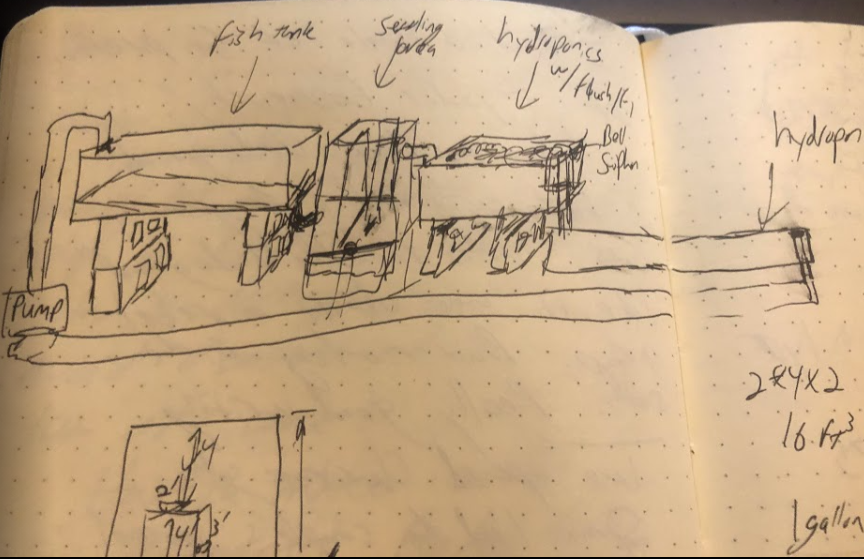 fish tank
Seedling
area
hydroponics
w/ flush/
Bell
Siphon
hydropon
Pump
2x4x2
16 ft³
1 gallon
4'
2'
4'
3'